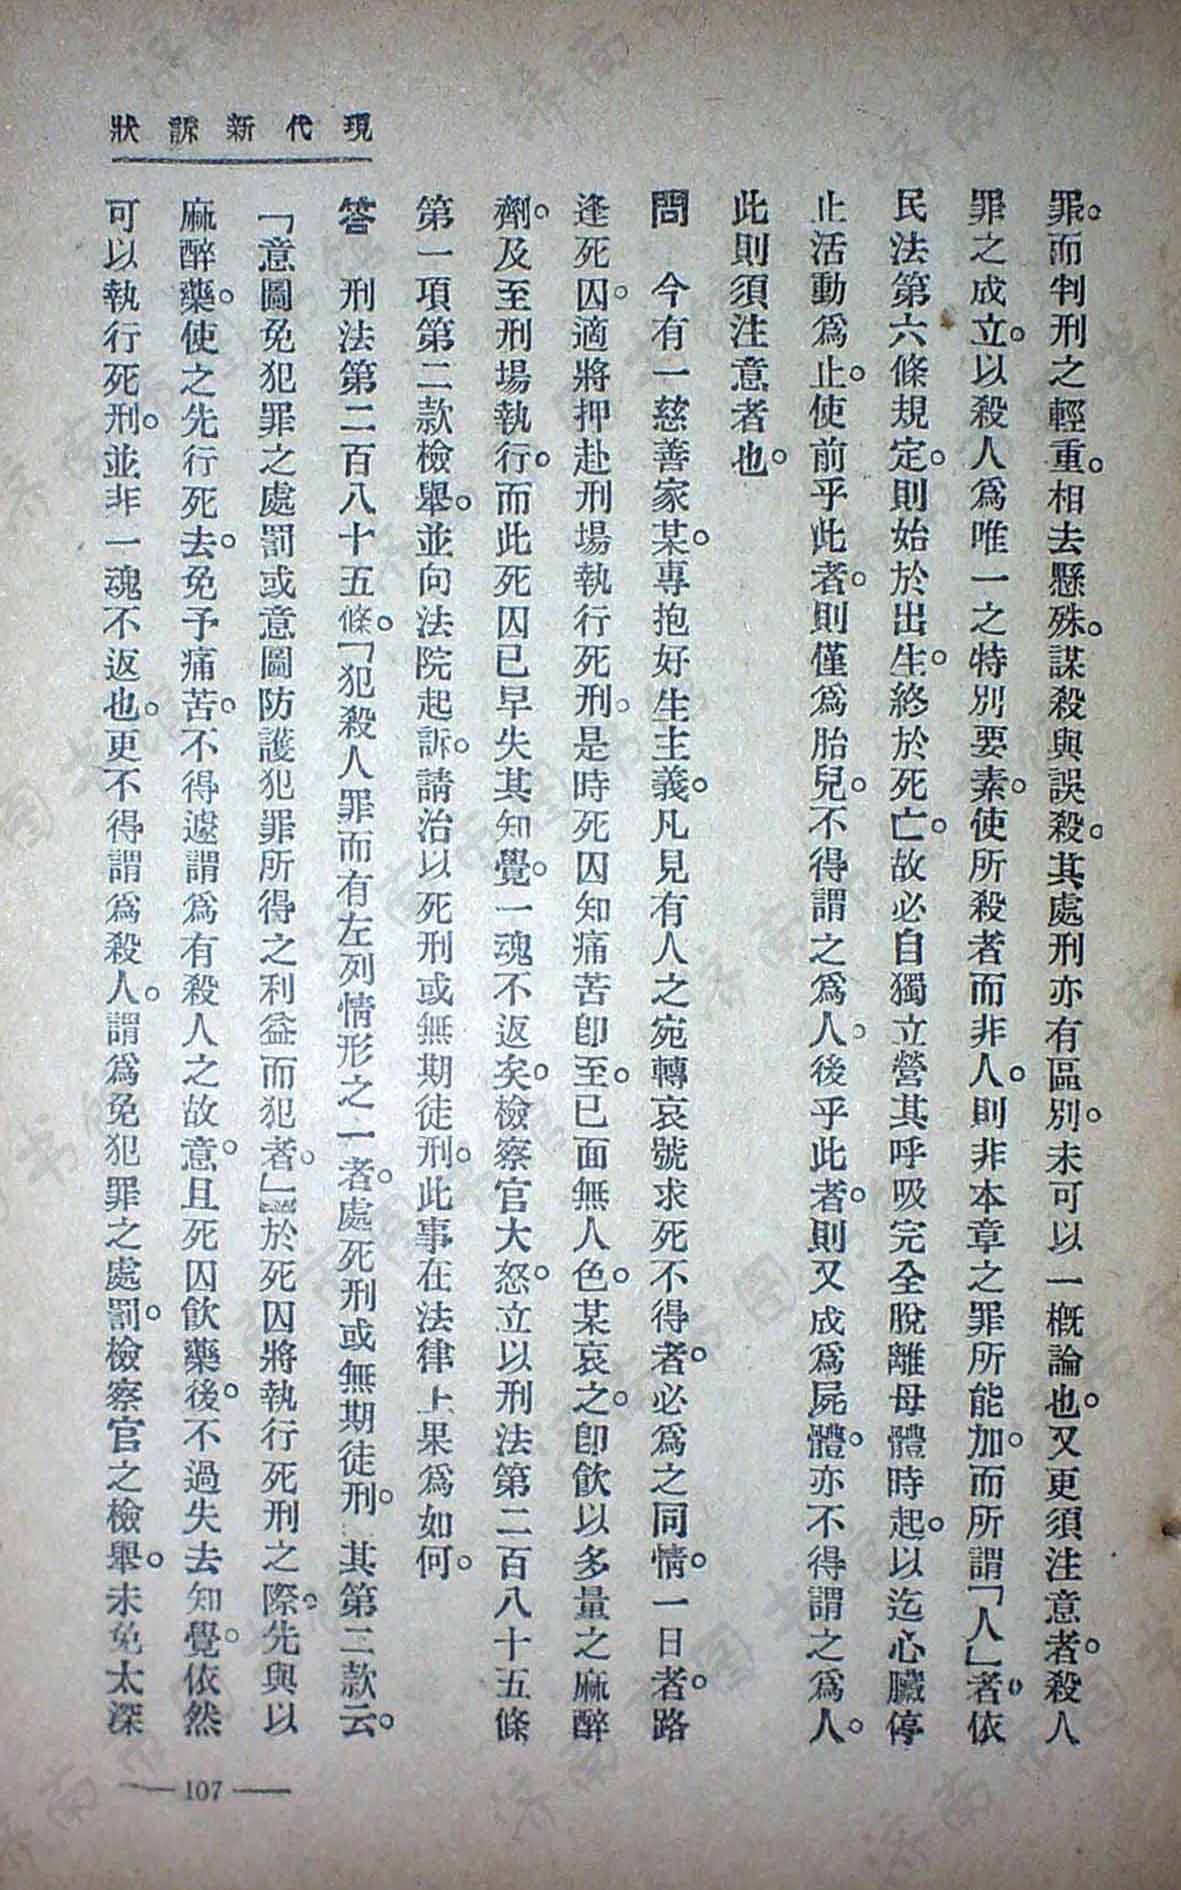 現代新訴狀
罪。而判刑之輕重。相去懸殊。謀殺與誤殺。其處刑亦有區別。未可以一概論也。又更須注意者。殺人
罪之成立。以殺人爲唯一之特別要素。使所殺者而非人。則非本章之罪所能加。而所謂「人」者。依
民法第六條規定。則始於出生。終於死亡。故必自獨立營其呼吸完全脫離母體時起。以迄心臟停
止活動爲止。使前乎此者。則僅爲胎兒。不得謂之爲人。後乎此者。則又成爲屍體。亦不得謂之爲人。
此則須注意者也。
問　今有一慈善家某。專抱好生主義。凡見有人之宛轉哀號求死不得者。必爲之同情。一日者。路
逢死囚。適將押赴刑場執行死刑。是時死囚知痛苦卽至。已面無人色。某哀之。卽飲以多量之麻醉
劑。及至刑場執行。而此死囚已早失其知覺。一魂不返矣。檢察官大怒。立以刑法第二百八十五條
第一項第二款檢舉。並向法院起訴。請治以死刑或無期徒刑。此事在法律上果爲如何。
答　刑法第二百八十五條。「犯殺人罪而有左列情形之一者。處死刑或無期徒刑。其第二款云。
「意圖免犯罪之處罰或意圖防護犯罪所得之利益而犯者。」於死囚將執行死刑之際。先與以
麻醉藥。使之先行死去。免予痛苦。不得遽謂爲有殺人之故意。且死囚飲藥後。不過失去知覺。依然
可以執行死刑。並非一魂不返也。更不得謂爲殺人。謂爲免犯罪之處罰。檢察官之檢舉。未免太深
— 107 —
濟南市图书馆